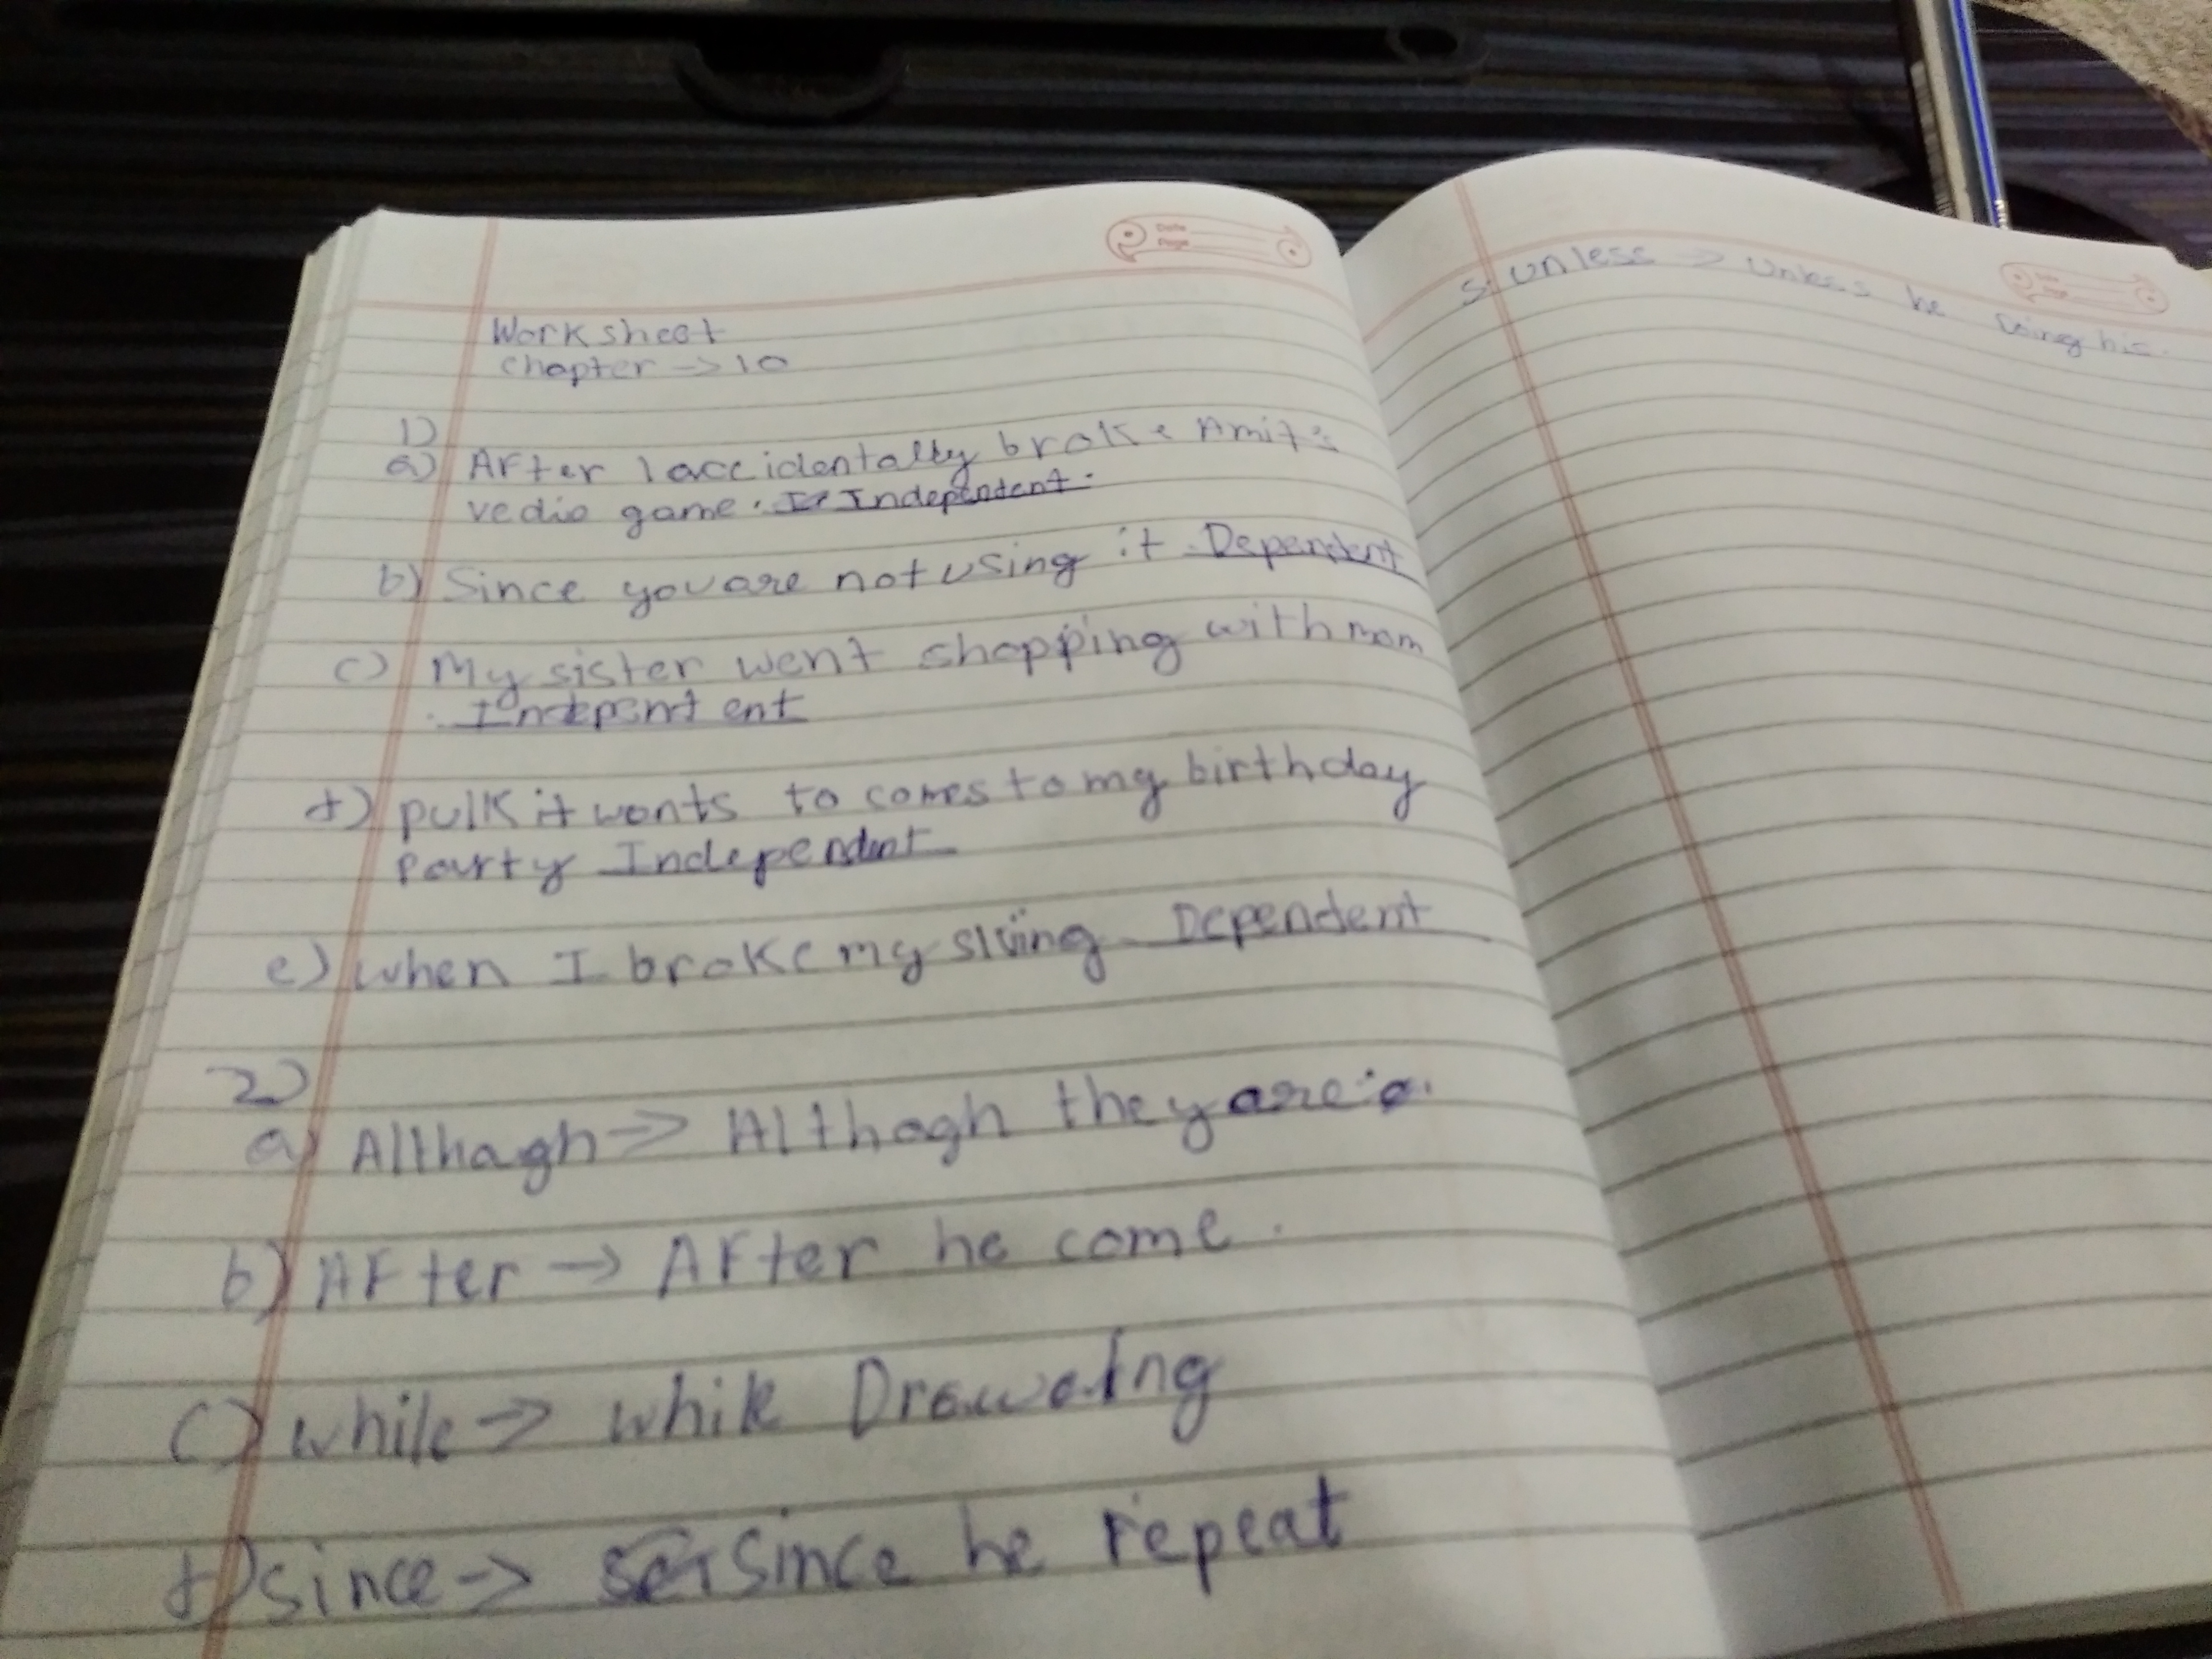 Date
Page
Worksheet
chapter → 10
1)
a) After I accidentally broke Amit's
vedio game. Independent.
b) Since you are not using it Dependent
c) My sister went shopping with mom
Indepent ent
d) pulkit wonts to comes to my birthday
Party Independent
e) when I broke my sling Dependent
2)
a) Althagh → Althogh they are
b) AFter → AFter he come.
c) while → while Drawing
d) since → since he repeat
unless → unless he Doing his.